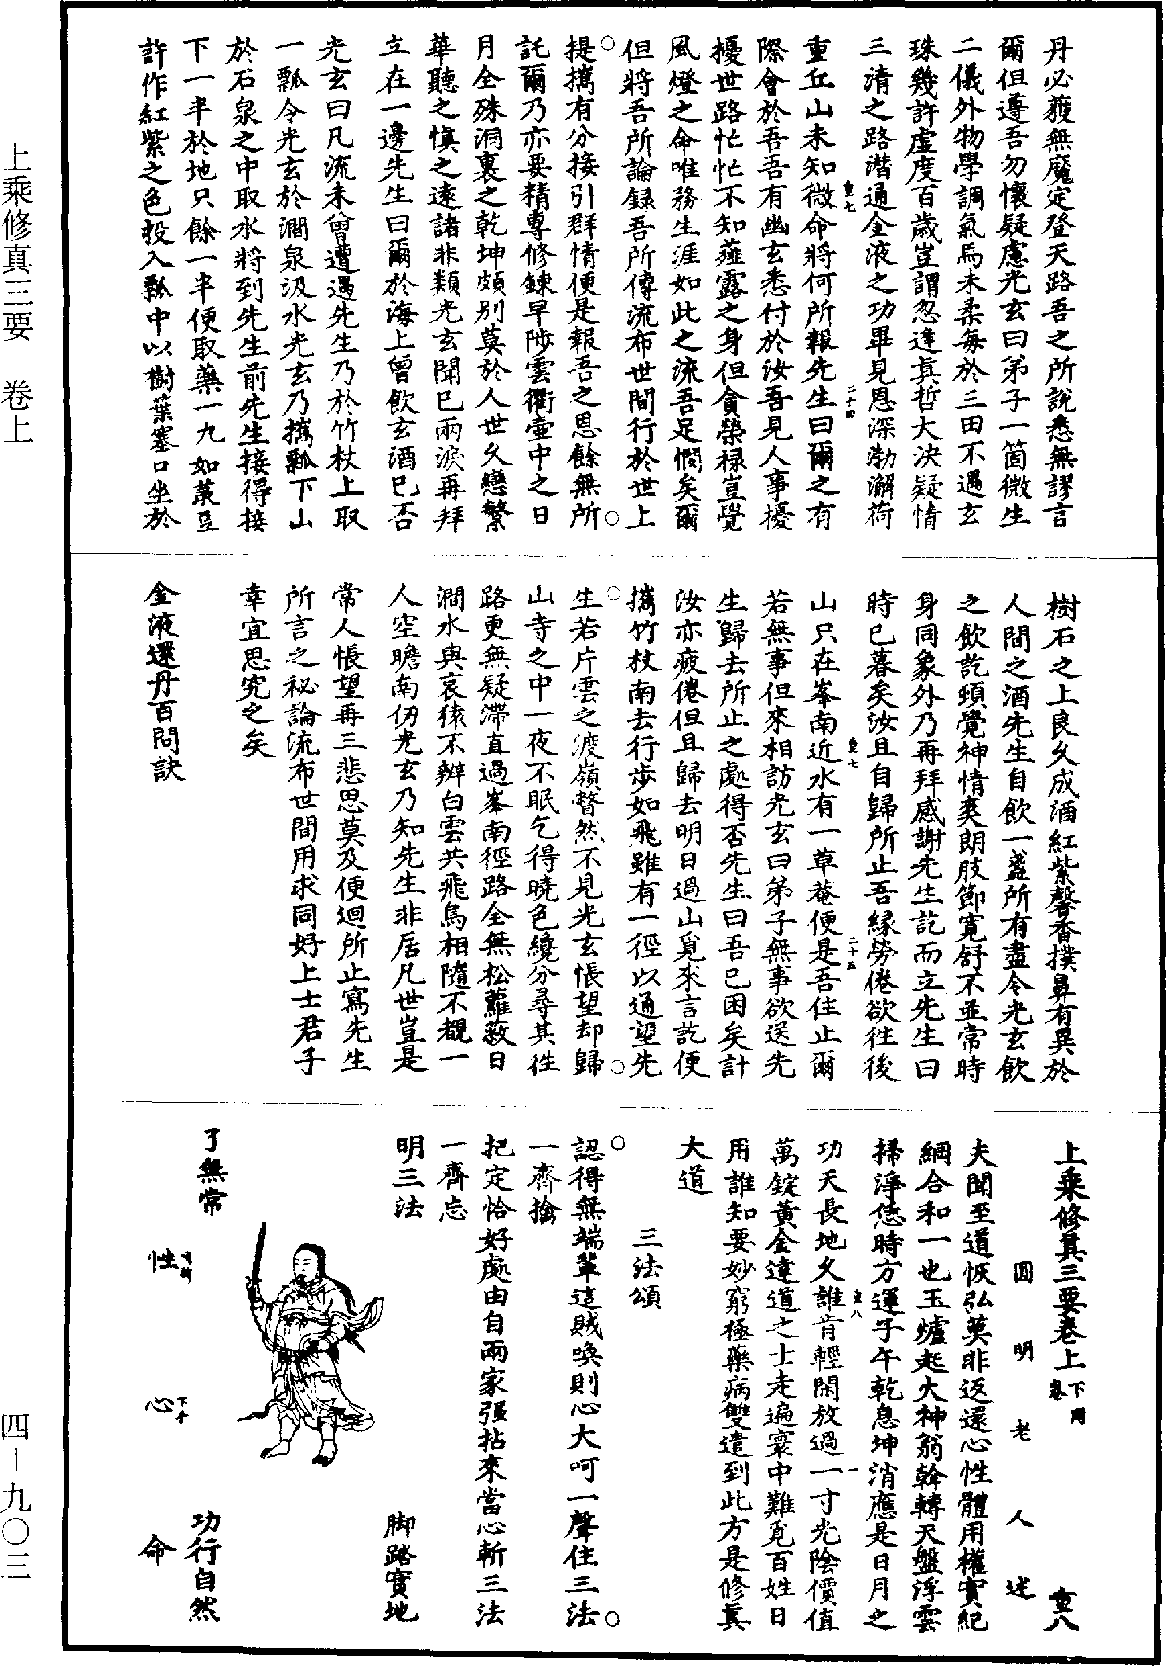 上乘修真三要　卷上
四—九〇三
丹必獲無魔定登天路吾之所說悉無謬言
爾但遵吾勿懷疑慮光玄曰弟子一箇微生
二儀外物學調氣馬未柔每於三田不遇玄
珠幾許虛度百歲豈謂忽逢真哲大決疑情
三清之路潛通金液之功畢見恩深渤澥荷
重七
重丘山未知微命將何所報先生曰爾之有
二十四
際會於吾吾有幽玄悉付於汝吾見人事擾
擾世路忙忙不知薤露之身但貪榮祿豈覺
風燈之命唯務生涯如此之流吾足憫矣爾
但將吾所論録吾所傳流布世間行於世上
提攜有分接引群情便是報吾之恩餘無所
託爾乃亦要精專修鍊早陟雲衢壺中之日
月全殊洞裏之乾坤頗別莫於人世久戀繁
華聽之慎之遠諸非類光玄聞已兩淚再拜
立在一邊先生曰爾於海上曾飲玄酒已否
光玄曰凡流未曾遭遇先生乃於竹杖上取
一瓢令光玄於澗泉汲水光玄乃攜瓢下山
於石泉之中取水將到先生前先生接得接
下一半於地只餘一半便取藥一丸如菉豆
許作紅紫之色投入瓢中以樹葉塞口坐於
樹石之上良久成酒紅紫馨香撲鼻有異於
人間之酒先生自飲一盞所有盡令光玄飲
之飲訖頓覺神情爽朗肢節寬舒不並常時
身同象外乃再拜感謝先生訖而立先生曰
時已暮矣汝且自歸所止吾緣勞倦欲往後
重七
山只在峯南近水有一草菴便是吾住止爾
二十五
若無事但來相訪光玄曰弟子無事欲送先
生歸去所止之處得否先生曰吾已困矣計
汝亦疲倦但且歸去明日過山覓來言訖便
攜竹杖南去行步如飛雖有一徑以通望先
生若片雲之渡嶺瞥然不見光玄悵望却歸
山寺之中一夜不眠乞得曉色纔分尋其往
路更無疑滯直過峯南徑路全無松蘿蔽日
澗水與哀猿不辨白雲共飛鳥相隨不覩一
人空瞻南仞光玄乃知先生非居凡世豈是
常人悵望再三悲思莫及便迴所止寫先生
所言之秘論流布世間用求同好上士君子
幸宜思究之矣
金液還丹百問訣
上乘修真三要卷上 下卷同
重八
圓明老人述
夫聞至道恢弘莫非返還心性體用權實紀
綱合和一也玉爐起火神翁斡轉天盤浮雲
掃淨恁時方運子午乾息坤消應是日月之
重八
功天長地久誰肯輕閑放過一寸光陰價值
一
萬錠黃金達道之士走遍寰中難覓百姓日
用誰知要妙窮極藥病雙遣到此方是修真
大道
三法頌
認得無端輩這賊喚則心大呵一聲住三法
一齊捨
把定恰好處由自兩家强拈來當心斬三法
一齊忘
明三法
脚踏實地
了無常
功行自然
性
心
命